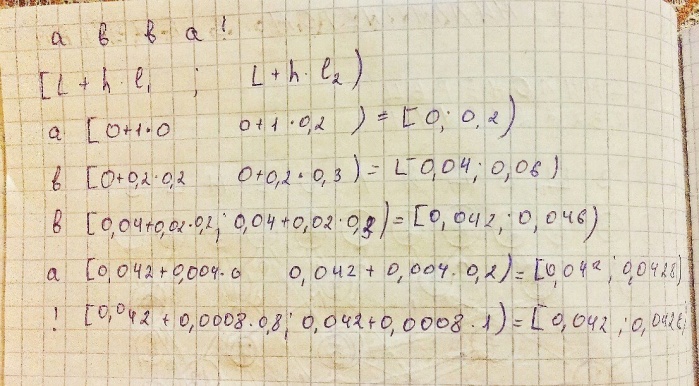 а в в а !
[L + h · l₁ ; L + h · l₂)
а [0+1·0 0+1·0,2 ) = [0; 0,2)
в [0+0,2·0,2 0+0,2·0,3) = [0,04; 0,06)
в [0,04+0,02·0,2; 0,04+0,02·0,3) = [0,042; 0,046)
а [0,042+0,004·0 0,042+0,004·0,2) = [0,042; 0,0428)
! [0,042+0,0008·0,8; 0,042+0,0008·1) = [0,042; 0,0428)